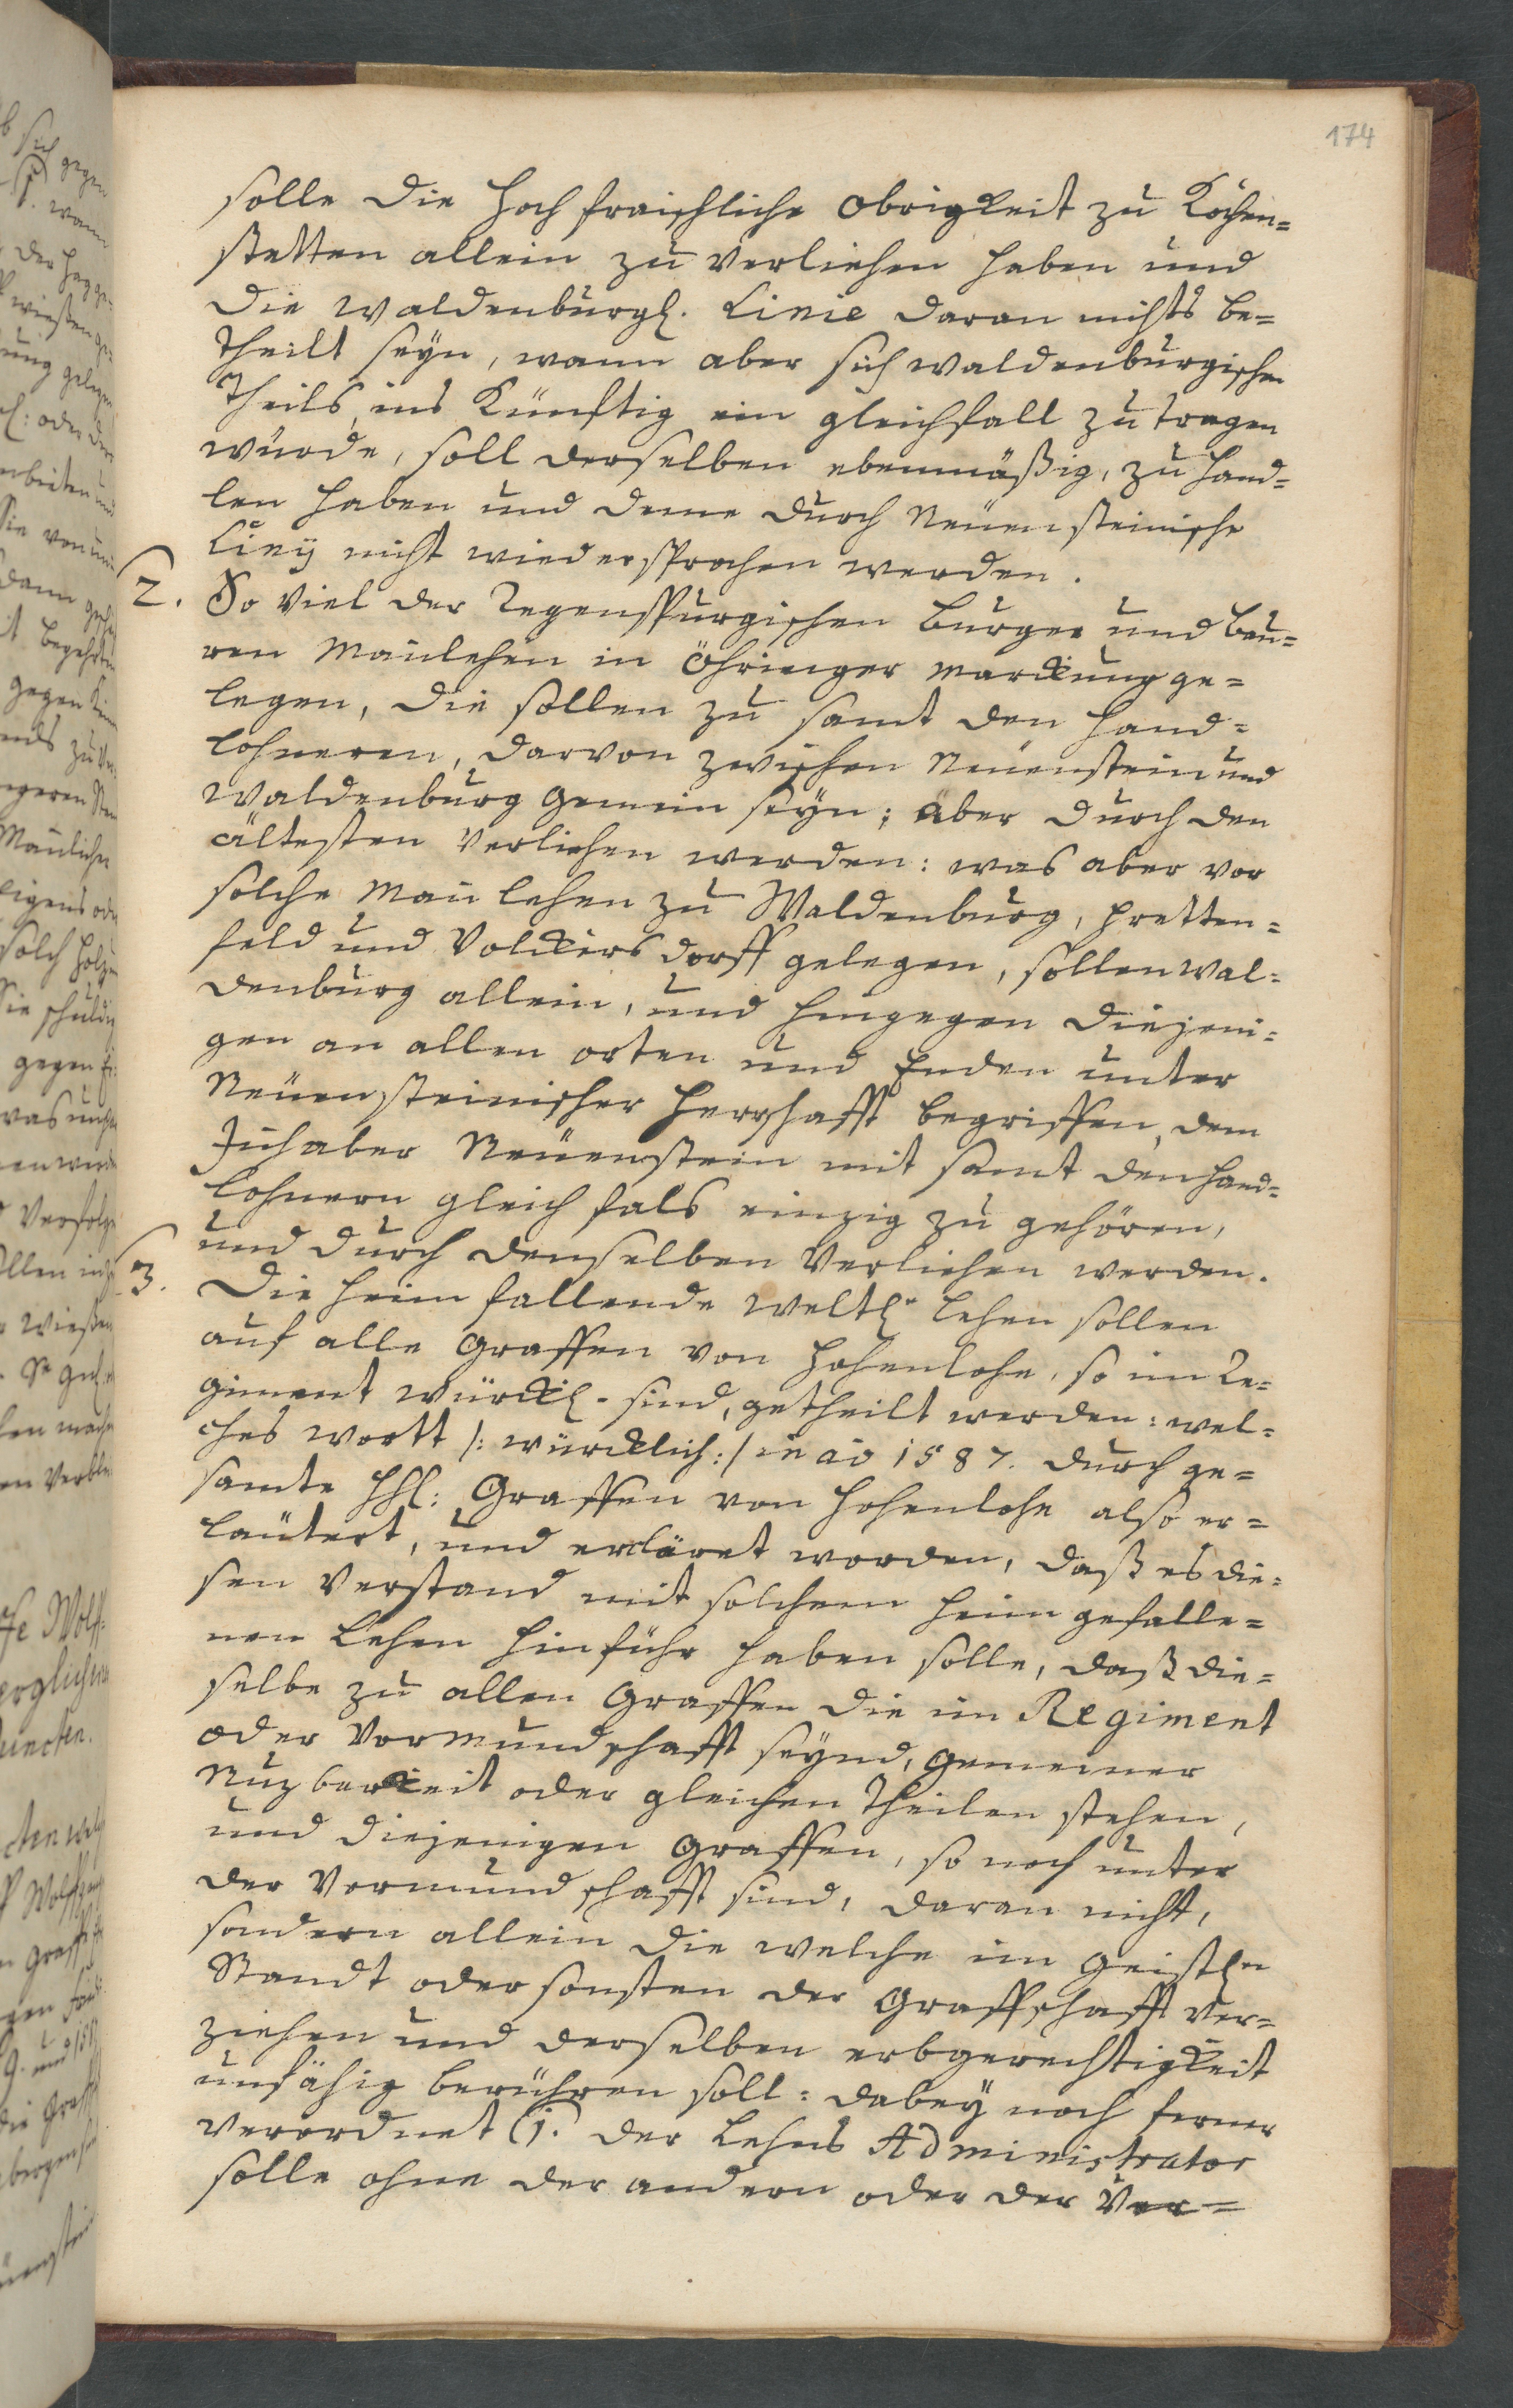 174
solle die Hoch fraischliche Obrigkeit zu Kochen=
stetten allein zu verliehen haben und
die Waldenburgl. Linie daran nichts be=
theilt seyn, wann aber sich Waldenburgischen
Theils, ins Künftig ein gleichfall zu tragen
würde, soll derselben ebenmäßig, zu Hand=
len haben und deme durch Neuensteinische
Liny nicht wiedersprochen werden.
2. So viel der Regenspurgischen Burger und Bau=
ren Manlehen in Öhringer Marckung ge=
legen, die sollen zu samt den Hand=
lohneren, darvon zwischen Neuenstein und
Waldenburg gemein seyn; aber durch den
ältesten Verliehen werden: was aber vor
solche Manlehen zu Waldenburg, Pretten=
feld und Volckersdorff gelegen, sollen Wal=
denburg allein, und hingegen diejeni=
gen an allen orten und Enden unter
Neuensteinischer Herrschafft begriffen, dem
Inhaber Neuenstein mit samt den Hand=
lohnern gleich fals einzig zu gehören,
und durch denselben Verliehen werden.
3. Die Heim fallende Weltl. Lehen sollen
auf alle Graffen von Hohenlohe, so im Re=
giment würckl. sind, getheilt werden: wel=
ches wortt /: würcklich :/ in ao 1587. durch ge=
samte HH: Graffen von Hohenlohe also er=
läutert, und erkläret worden, daß es die=
sen Verstand mit solchem heim gefalle=
nen Lehen hinführ haben solle, daß die=
selbe zu allen Graffen die im Regiment
oder Vormundschafft seynd, gemeiner
Nuzbarkeit oder gleichen Theilen stehen,
und diejenigen Graffen, so noch unter
der Vormundschafft sind, daran nicht,
sondern allein die welche im Geistln
Standt oder sonsten der Graffschafft Ver=
ziehen und derselben erbgerechtigkeit
unfähig berühren soll: dabey noch ferner
verordnet (1. der Lehens Administrator
solle ohne der andern oder der Ver=